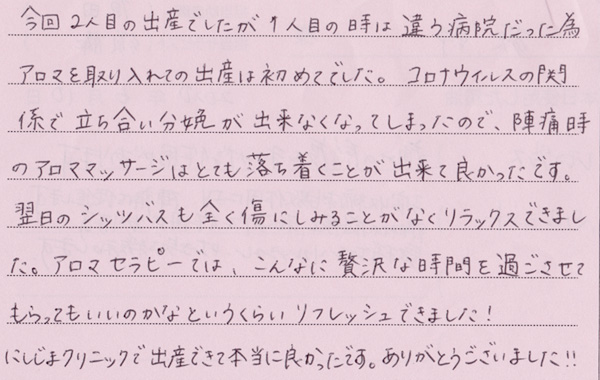 今回2人目の出産でしたが1人目の時は違う病院だった為
アロマを取り入れての出産は初めてでした。コロナウイルスの関
係で立ち合い分娩が出来なくなってしまったので、陣痛時
のアロママッサージはとても落ち着くことが出来て良かったです。
翌日のシッツバスも全く傷にしみることがなくリラックスできまし
た。アロマセラピーでは、こんなに贅沢な時間を過ごさせて
もらってもいいのかなというくらいリフレッシュできました!
にしじまクリニックで出産できて本当に良かったです。ありがとうございました!!